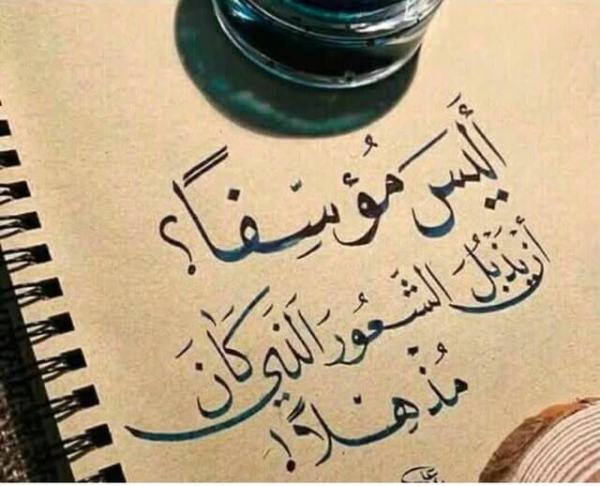 أَلَيسَ مُؤسِّفاً؟
أن يَذبُلَ الشّعُورَ الذي كَانَ
مُذهِلاً!